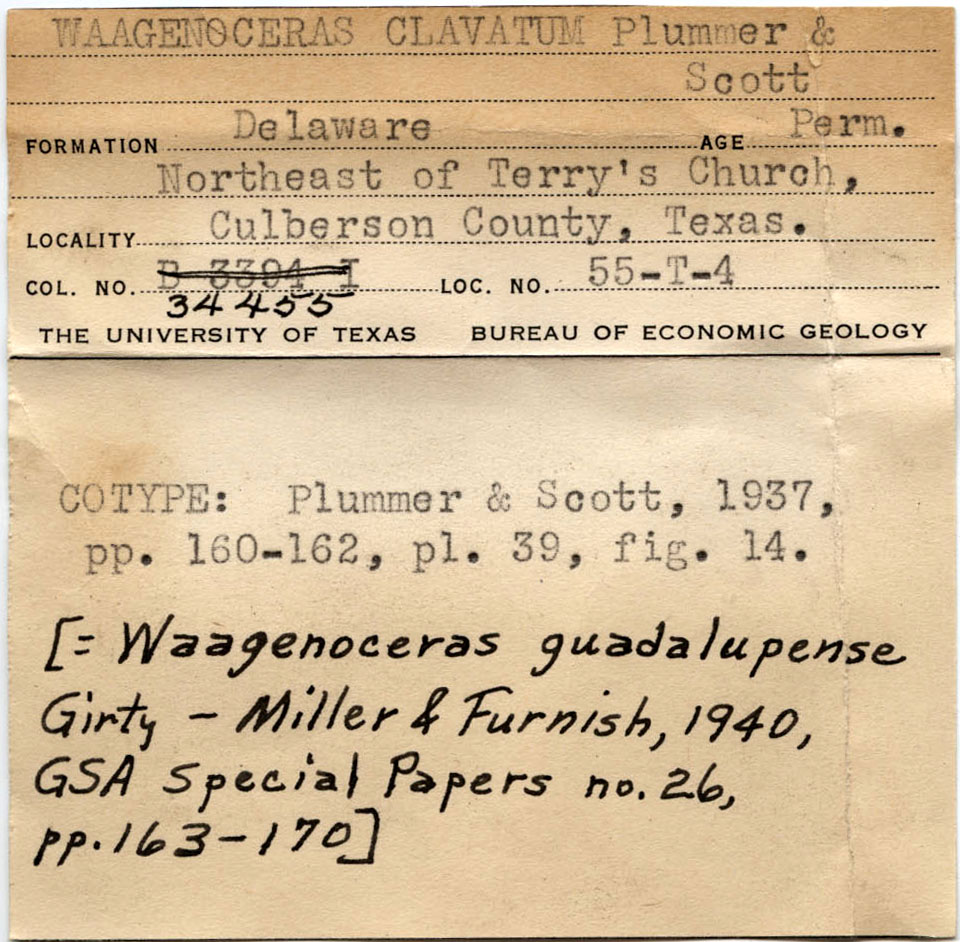 WAAGENOCERAS CLAVATUM Plummer &
Scott
FORMATION Delaware AGE Perm.
Northeast of Terry's Church,
LOCALITY Culberson County, Texas.
COL. NO. B 3394 I LOC. NO. 55-T-4
34455
THE UNIVERSITY OF TEXAS BUREAU OF ECONOMIC GEOLOGY
COTYPE: Plummer & Scott, 1937,
pp. 160-162, pl. 39, fig. 14.
[= Waagenoceras guadalupense
Girty - Miller & Furnish, 1940,
GSA Special Papers no. 26,
pp. 163-170]